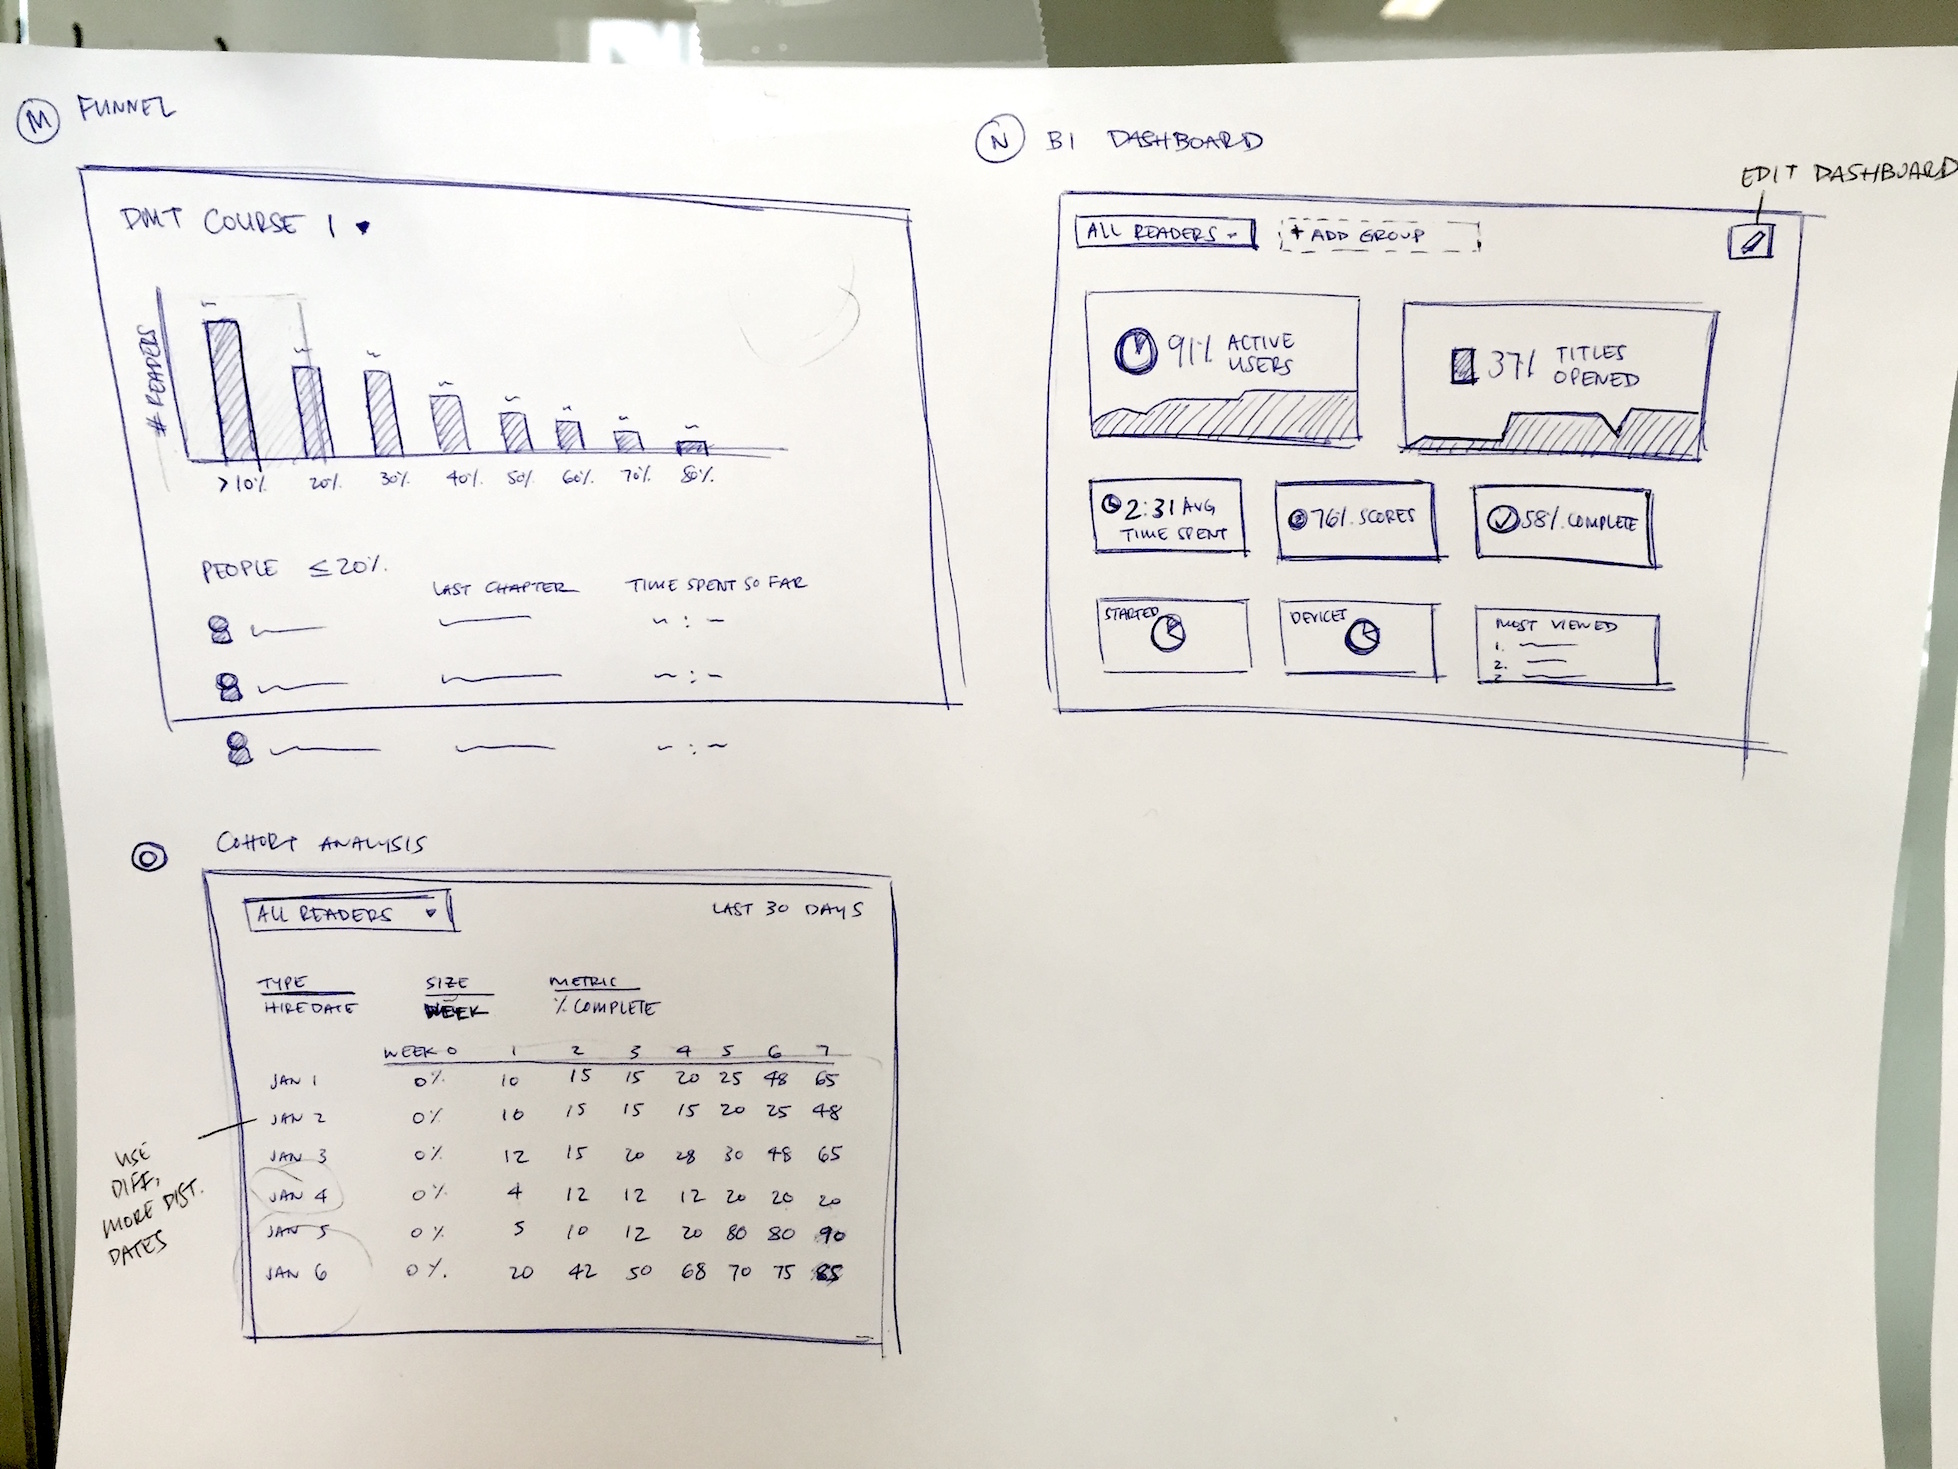 M FUNNEL
DMT COURSE 1
# READERS
>10% 20% 30% 40% 50% 60% 70% 80%
PEOPLE ≤20% LAST CHAPTER TIME SPENT SO FAR
N BI DASHBOARD
EDIT DASHBOARD
ALL READERS + ADD GROUP
91% ACTIVE
USERS
37% TITLES
OPENED
2:31 AVG
TIME SPENT
76% SCORES
58% COMPLETE
STARTED
DEVICES
MOST VIEWED
1.
2.
O COHORT ANALYSIS
ALL READERS LAST 30 DAYS
TYPE SIZE METRIC
HIRE DATE WEEK % COMPLETE
WEEK 0 1 2 3 4 5 6 7
JAN 1 0% 10 15 15 20 25 48 65
JAN 2 0% 10 15 15 15 20 25 48
JAN 3 0% 12 15 20 28 30 48 65
JAN 4 0% 4 12 12 12 20 20 20
JAN 5 0% 5 10 12 20 80 80 90
JAN 6 0% 20 42 50 68 70 75 85
USE
DIFF,
MORE DIST.
DATES